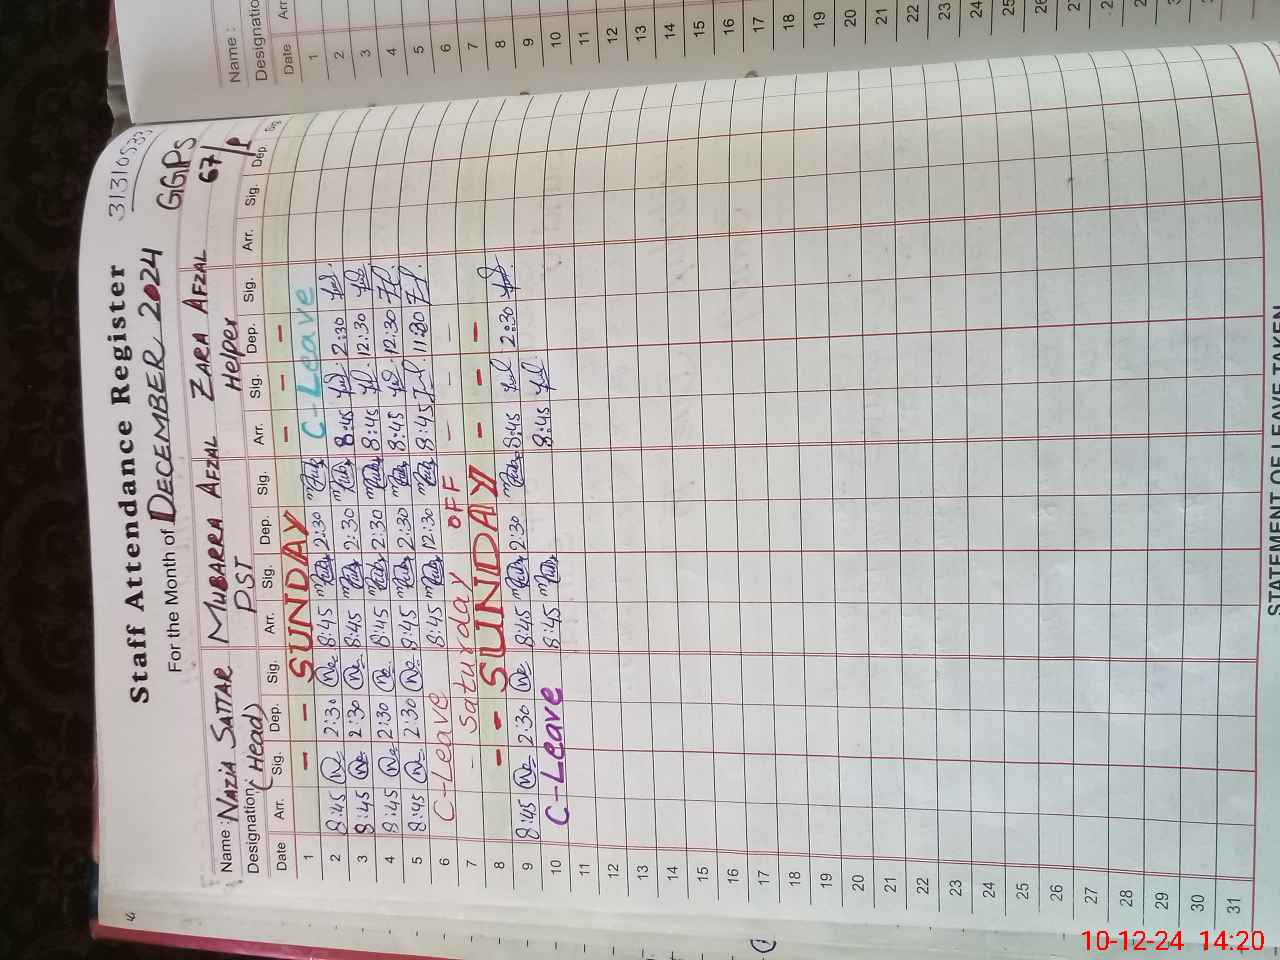 31310533
Staff Attendance Register
For the Month of DECEMBER 2024 GGPS 67/P
Name : NAZIA SATTAR MUBARRA AFZAL ZARA AFZAL
Designation: (Head) PST Helper
Date Arr. Sig. Dep. Sig. Arr. Sig. Dep. Sig. Arr. Sig. Dep. Sig. Arr. Sig. Dep. Sig.
1 - - SUNDAY - - -
2 8:45 2:30 8:45 2:30 C-Leave
3 8:45 2:30 8:45 2:30 8:45 2:30
4 8:45 2:30 8:45 2:30 8:45 12:30
5 8:45 2:30 8:45 2:30 8:45 12:30
6 C-Leave 8:45 12:30 8:45 11:30
7 - Saturday OFF - - - -
8 - - SUNDAY - - -
9 8:45 2:30 8:45 2:30 8:45 2:30
10 C-Leave 8:45 8:45
11
12
13
14
15
16
17
18
19
20
21
22
23
24
25
26
27
28
29
30
31
STATEMENT OF LEAVE TAKEN
Name :
Date Arr.
1
2
3
4
5
6
7
8
9
10
11
12
13
14
15
16
17
18
19
20
21
22
23
24
25
10-12-24 14:20